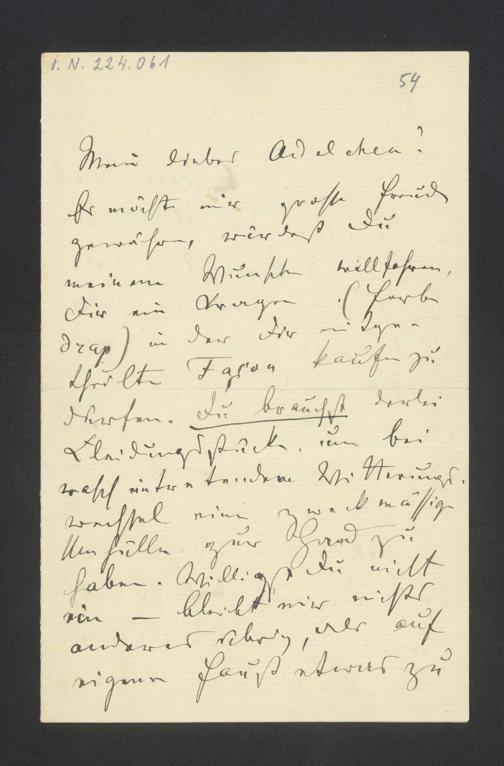 I. N. 224.061
54
Mein liebes Adelchen!
Es möchte mir große Freude
gewähren, würdest Du
meinem Wunsche willfahren,
Dir ein Kragen (Farbe
drap) in der Dir mitge-
theilten Façon kaufen zu
dürfen. Du brauchst derlei
Kleidungsstücke, um bei
rasch eintretendem Witterungs-
wechsel eine zweckmässige
Umhülle zur Hand zu
haben. Willigst Du nicht
ein – bleibt mir nichts
anderes übrig, als auf
eigene Faust etwas zu